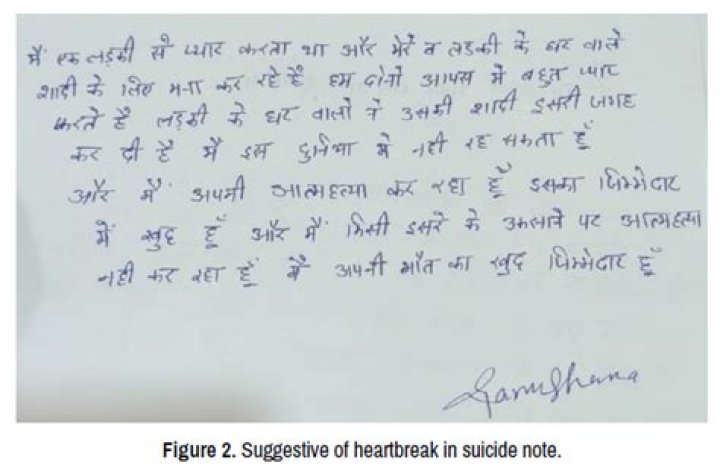 मैं एक लड़की से प्यार करता था और मेरे व लड़की के घर वाले
शादी के लिए मना कर रहे है हम दोनो आपस मे बहुत प्यार
करते है लड़की के घर वालो ने उसकी शादी दुसरी जगह
कर दी है मै इस दुनिया मे नही रह सकता हूँ
और मैं अपनी आत्महत्या कर रहा हूँ इसका जिम्मेदार
में खुद हूँ और मैं किसी दुसरे के उकसाने पर आत्महत्या
नही कर रहा हूँ मै अपनी मौत का खुद जिम्मेदार हूँ
Figure 2. Suggestive of heartbreak in suicide note.